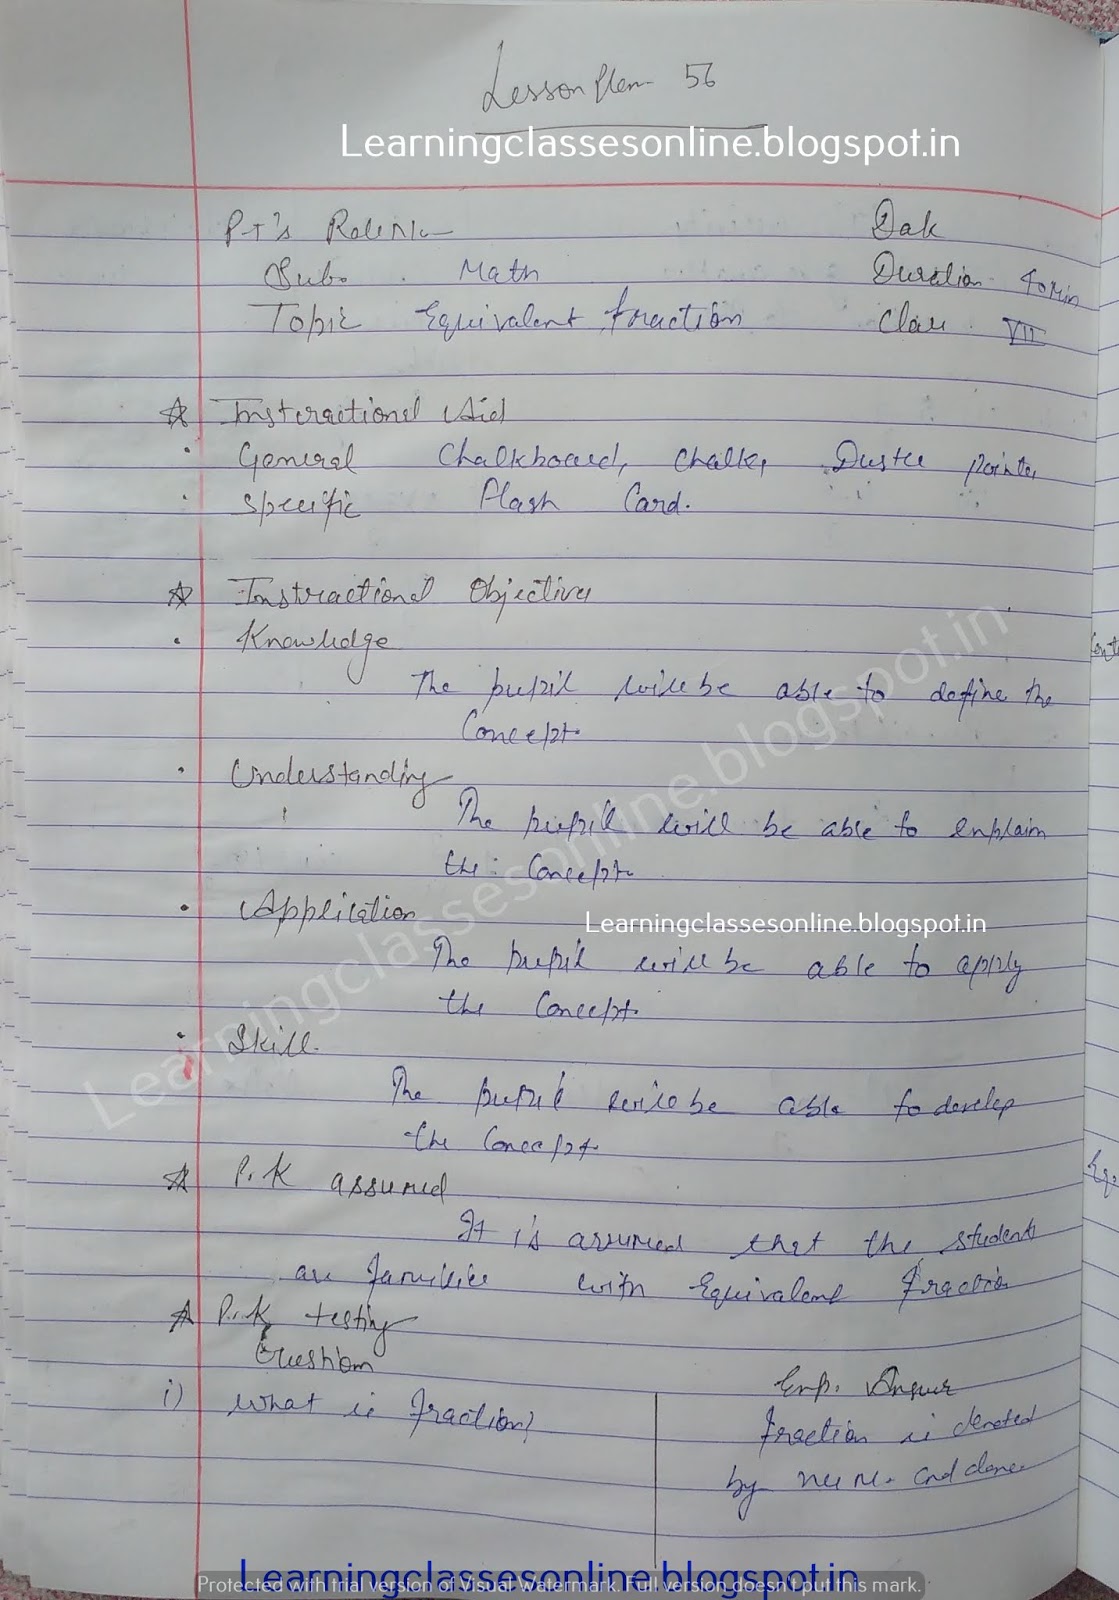 Lesson Plan 56
Learningclassesonline.blogspot.in
P-T's Roll No
Date
Sub. Math
Duration 40 Min
Topic Equivalent fraction
Class VII
☆ Instructional Aid
• General Chalkboard, Chalk, Duster pointer
• Specific Flash Card.
☆ Instructional Objectives
• Knowledge
The pupil will be able to define the
Concept.
• Understanding
The pupil will be able to explain
the Concept.
• Application
Learningclassesonline.blogspot.in
The pupil will be able to apply
the Concept.
• Skill.
The pupil will be able to develop
the Concept.
☆ P.K assumed
It is assumed that the students
are familiar with Equivalent fraction
☆ P.K testing
Question
Exp. Answer
i) What is fraction?
fraction is denoted
by num. and
Learningclassesonline.blogspot.in
Learningclassesonline.blogspot.in
Protected with trial version of Visual Watermark. Full version doesn't put this mark.